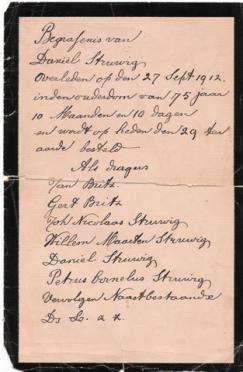 Begrafenis van
Daniel Struwig
Overleden op den 27 Sept 1912.
in den ouderdom van 75 jaar
10 Maanden en 10 dagen
en wordt op heden den 29 ter
aarde besteld
Als dragers
Jan Britz
Gert Britz
Joh Nicolaas Struwig
Willem Maarten Struwig
Daniel Struwig
Petrus Cornelus Struwig
Vervolgen Naastbestaande
Ds L. a